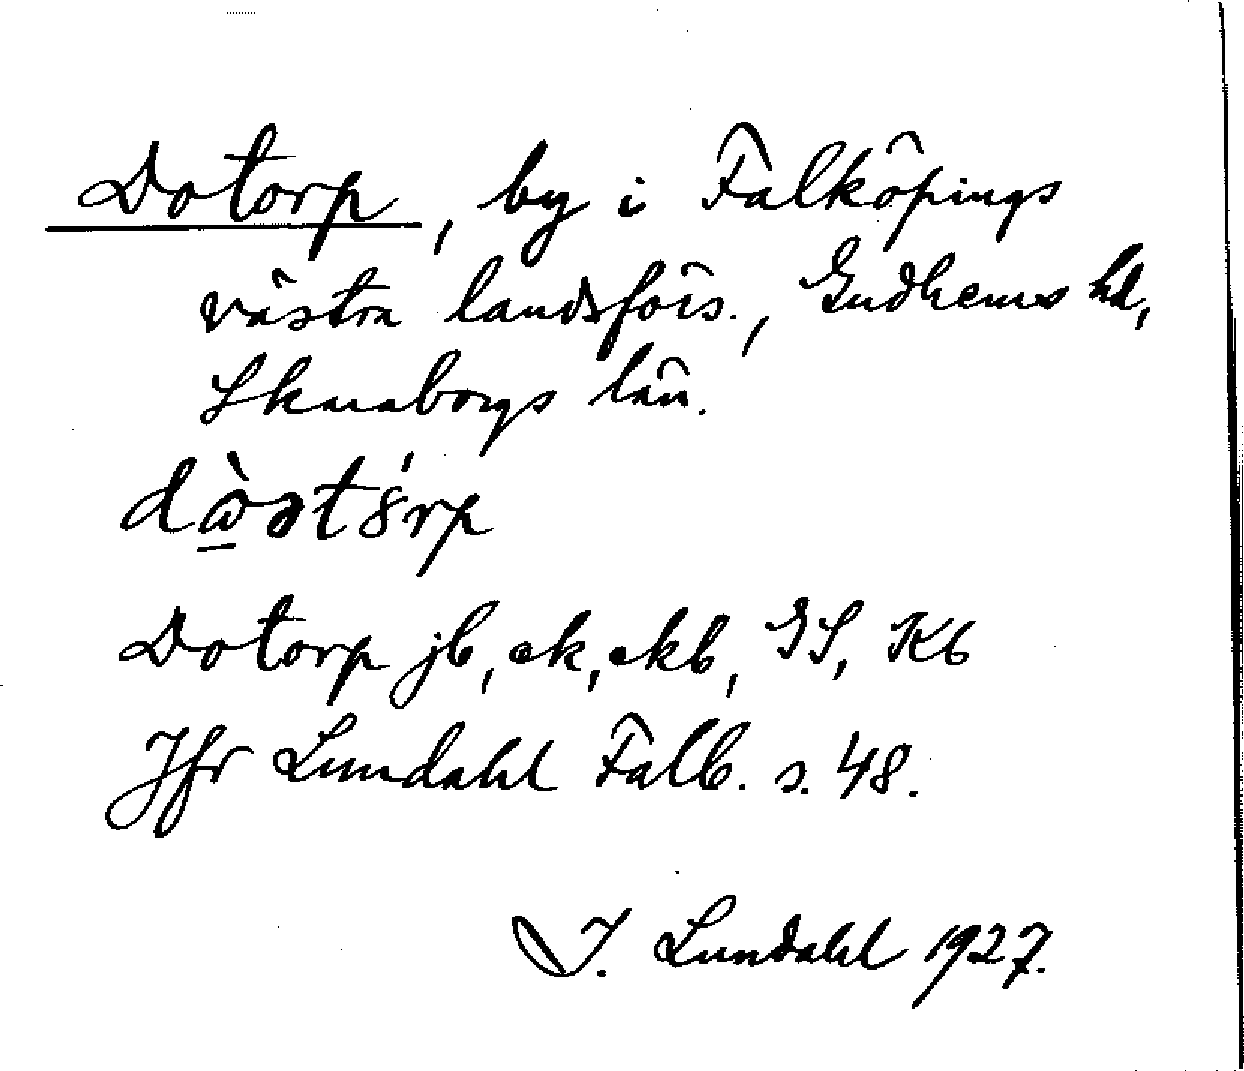 Dotorp, by i Falköpings
västra landsförs., Gudhems hd,
Skaraborgs län.
Dotorp jb, ek, ekb, GS, Kb
Jfr Lundahl Falb. s. 48.
I. Lundahl 1927.